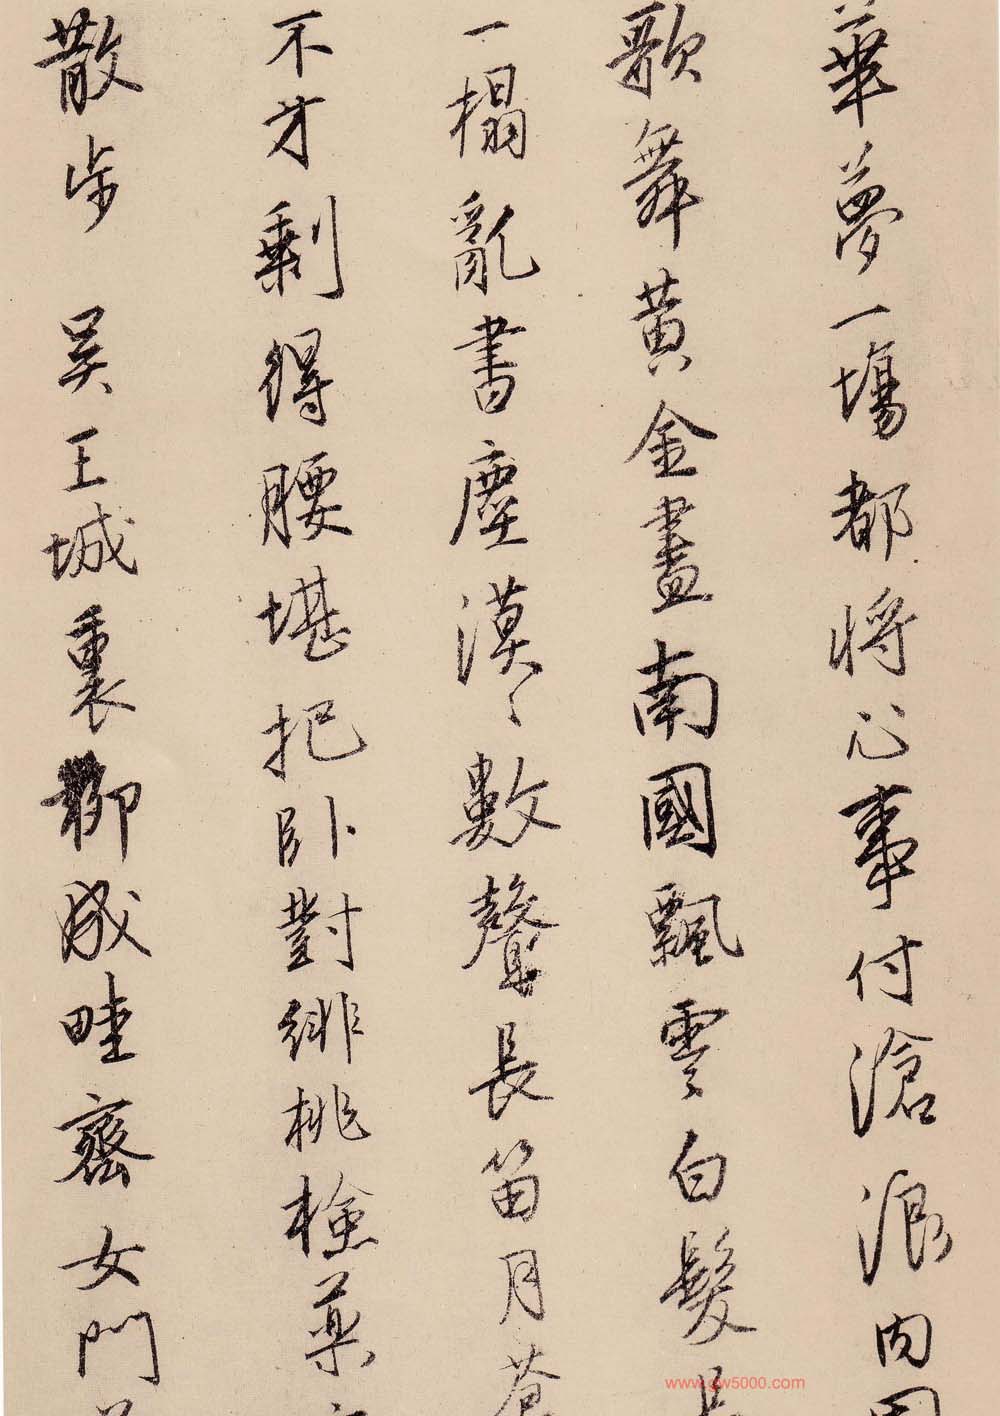 華夢一場都將心事付滄浪內園
歌舞黃金盡南國飄零白髮長
一榻亂書塵漠〻數聲長笛月蒼
不才剩得腰堪把臥對緋桃檢藥
散步 吳王城裏柳成畦齊女門
www.gw5000.com